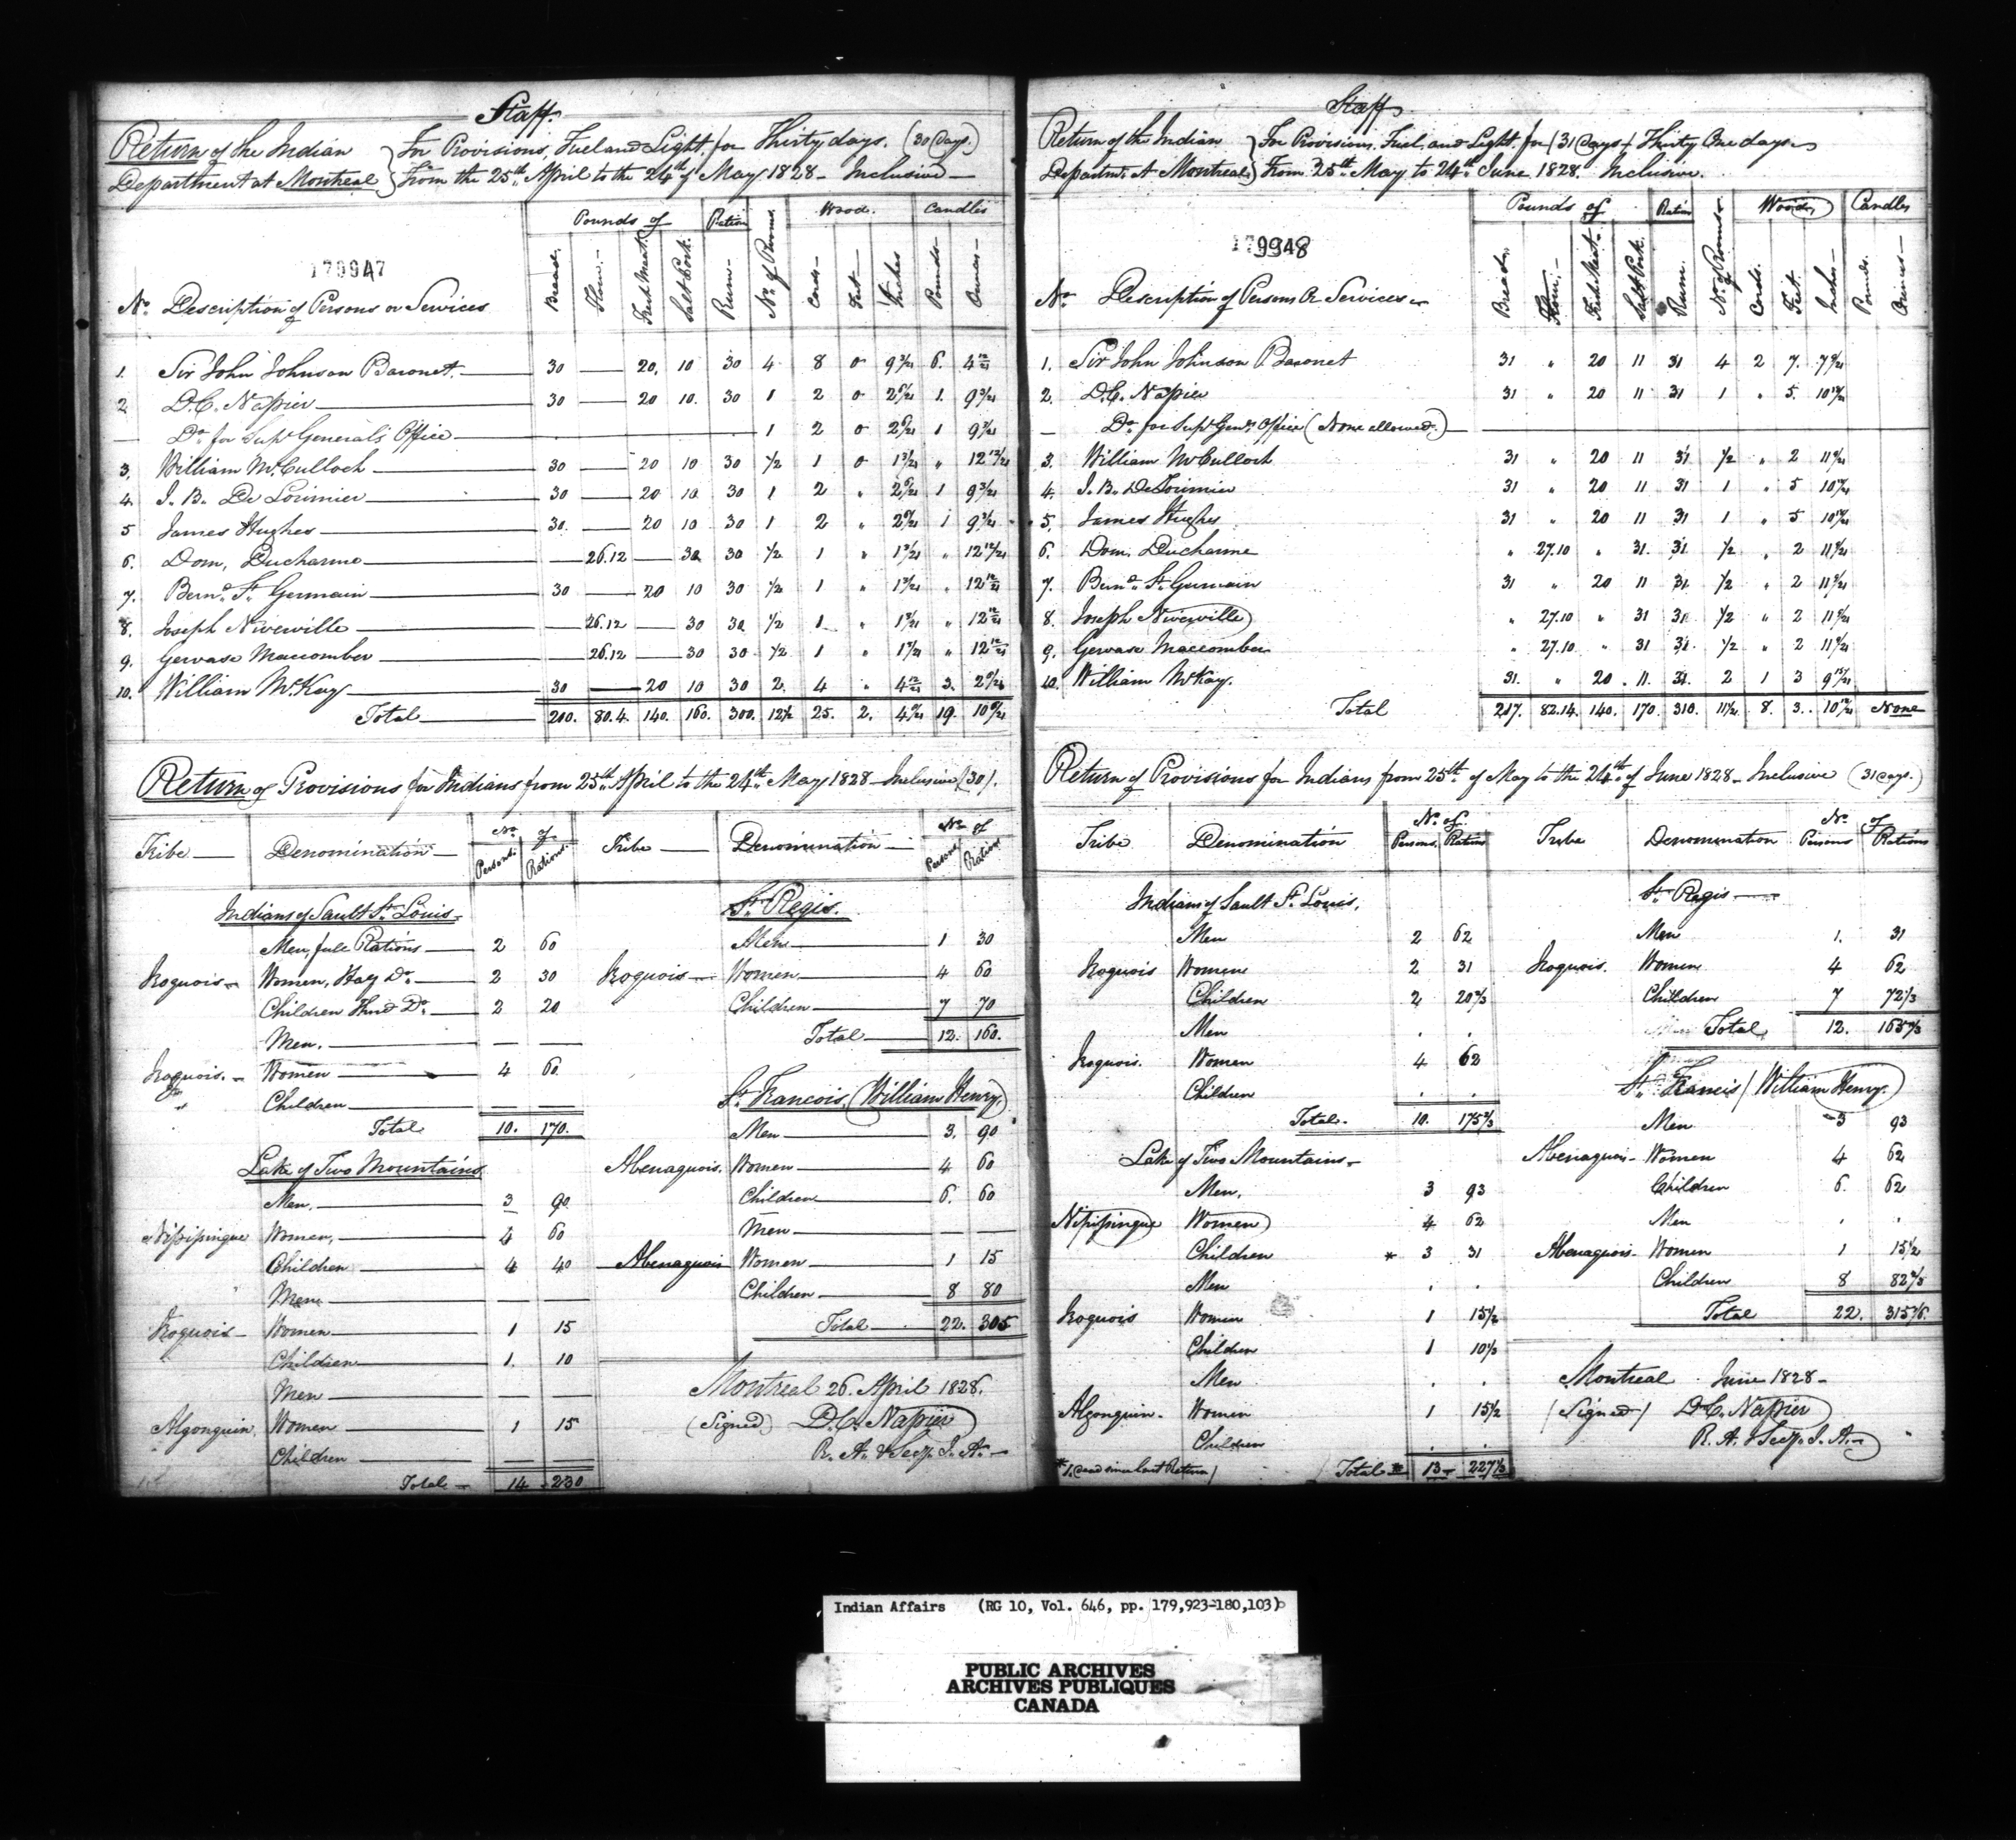 Staff.
Return of the Indian Department at Montreal } For Provisions, Fuel and Light, for Thirty days. (30 Days.)
From the 25th April to the 24th of May 1828 - Inclusive -
179947
Pounds of | Ration | No. of Rooms | Wood. | Candles
No. Description of Persons or Services | Bread. | Flour. - | Fresh Meat. | Salt Pork. | Rum - | No. of Rooms | Cords - | Feet - | Inches | Pounds - | Ounces -
1. Sir John Johnson Baronet. 30 — 20. 10 30 4 8 0 9 3/21 6. 4 12/21
2 D.C. Napier 30 — 20 10. 30 1 2 0 2 6/21 1. 9 3/21
— Do. for Supt. General's Office 1 2 0 2 6/21 1 9 3/21
3, William McCulloch 30 — 20 10 30 1/2 1 0 1 3/21 " 12 12/21
4. J. B. De Lorimier 30 — 20 10 30 1 2 " 2 6/21 1 9 3/21
5 James Hughes 30. — 20 10 30 1 2 " 2 6/21 1 9 3/21
6. Dom, Ducharme — 26.12 — 30 30 1/2 1 " 1 3/21 " 12 12/21
7. Bernd. St. Germain 30 — 20 10 30 1/2 1 " 1 3/21 " 12 12/21
8. Joseph Niverville — 26.12 — 30 30 1/2 1 " 1 3/21 " 12 12/21
9. Gervase Maccomber — 26.12 — 30 30 1/2 1 " 1 3/21 " 12 12/21
10. William McKay 30 — 20 10 30 2. 4 " 4 12/21 3. 2 6/21
Total 200. 80.4. 140. 160. 300. 12 1/2 25. 2. 4 6/21 19. 10 6/21
Return of Provisions for Indians from 25th April to the 24th May 1828 - Inclusive (30).
Tribe — Denomination — No. of Persons. Rations. Tribe — Denomination — No. of Persons Rations
Indians of Sault St. Louis -
Men, full Rations 2 60
Iroquois - Women, Half Do. 2 30
Children Third Do. 2 20
Men. — —
Iroquois. - Women 4 60
" Children — —
Total 10. 170.
Lake of Two Mountains
Men. 3 90
Nipissingue Women, 4 60
Children 4 40
Men — —
Iroquois - Women 1 15
Children 1. 10
Men — —
Algonquin, Women 1 15
Children — —
Total - 14 230
St. Regis.
Men 1 30
Iroquois - Women 4 60
Children 7 70
Total 12. 160.
St. Francois, (William Henry)
Men 3. 90
Abenaquois. Women 4 60
Children 6. 60
Men —
Abenaquois Women 1 15
Children 8 80
Total 22. 305
Montreal 26. April 1828.
(Signed) D.C. Napier
R. A. & Secy. I. A. -
Staff
Return of the Indian Departmt. At Montreal } For Provisions, Fuel, and Light, for (31 Days) Thirty One days -
From 25th May to 24th June 1828. Inclusive.
179948
Pounds of | Ration | No. of Rooms - | Wood | Candles
No. Description of Persons Or Services - | Bread, | Flour, - | Fresh Meat. | Salt Pork. | Rum. | Cords. | Feet. | Inches - | Pounds. | Ounces -
1. Sir John Johnson Baronet 31 " 20 11 31 4 2 7. 7 9/21
2. D.C. Napier 31 " 20 11 31 1 " 5. 10 12/21
— Do. for Supt. Genl's Office (None allowed.)
3. William McCulloch 31 " 20 11 31 1/2 " 2 11 9/21
4. J. B. De Lorimier 31 " 20 11 31 1 " 5 10 12/21
5. James Hughes 31 " 20 11 31 1 " 5 10 12/21
6. Dom. Ducharme " 27.10 " 31. 31. 1/2 " 2 11 9/21
7. Bernd. St. Germain 31 " 20 11 31. 1/2 " 2 11 9/21
8. Joseph Niverville " 27.10 " 31 31. 1/2 " 2 11 9/21
9. Gervase Maccomber " 27.10 " 31 31. 1/2 " 2 11 9/21
10. William McKay. 31. " 20 . 11. 31. 2 1 3 9 15/21
Total 217. 82.14. 140. 170. 310. 11 1/2 8. 3. 10 12/21 None
Return of Provisions for Indians from 25th of May to the 24th of June 1828 - Inclusive (31 Days.)
Tribe Denomination No. of Persons Rations Tribe Denomination No. of Persons Rations
Indians of Sault St. Louis,
Men 2 62
Iroquois Women 2 31
Children 2 20 2/3
Men . .
Iroquois. Women 4 62
Children . .
Total. 10. 175 2/3
Lake of Two Mountains -
Men, 3 93
Nipissingue Women 4 62
Children * 3 31
Men . .
Iroquois Women 1 15 1/2
Children 1 10 1/3
Men . .
Algonquin - Women 1 15 1/2
Children . .
* 1. dead since last Return / Total * 13 - 227 1/3
St. Regis -
Men 1. 31
Iroquois. Women 4 62
Children 7 72 1/3
Total 12. 165 1/3
St. Francis / William Henry.
Men 3 93
Abenaquois - Women 4 62
Children 6. 62
Men . .
Abenaquois - Women 1 15 1/2
Children 8 82 2/3
Total 22. 315 1/6
Montreal June 1828 -
(Signed) D.C. Napier
R. A. & Secy. I. A. -
Indian Affairs (RG 10, Vol. 646, pp. 179,923-180,103)
PUBLIC ARCHIVES
ARCHIVES PUBLIQUES
CANADA